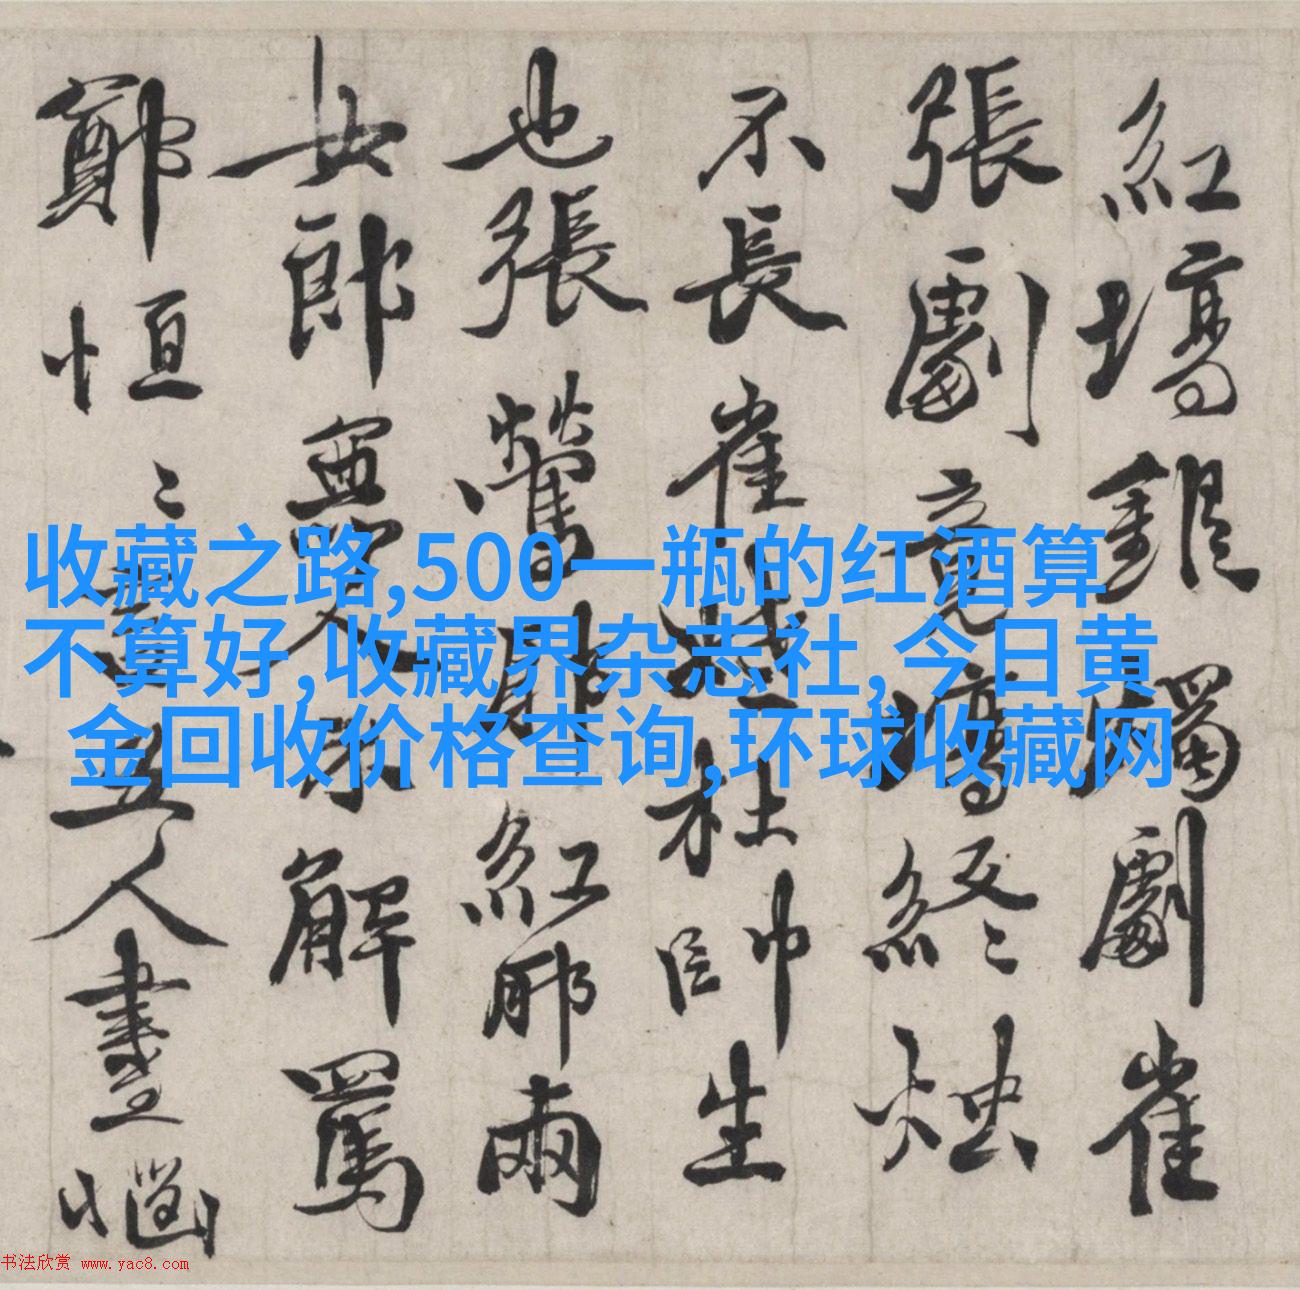 紅塙銀燭劇崔
張劇竟塙終〻燭
不長崔
杜帥生
也張鶯
紅郎兩
女郎
解罵
鄭恒〻
五人盡惱
收藏之路,500一瓶的红酒算
不算好,收藏界杂志社,今日黄
金回收价格查询,环球收藏网
书法欣赏 www.yac8.com